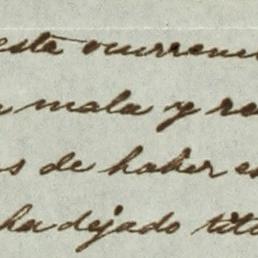 esta ocurren
mala y re
s de haber es
ha dejado tit